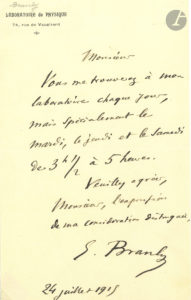 Branly
LABORATOIRE DE PHYSIQUE
74, rue de Vaugirard
Monsieur
Vous me trouverez à mon
laboratoire chaque jour,
mais spécialement le
mardi, le jeudi et le samedi
de 3h 1/2 à 5 heures.
Veuillez agréer,
Monsieur, l'expression
de ma considération distinguée,
E. Branly
24 juillet 1915